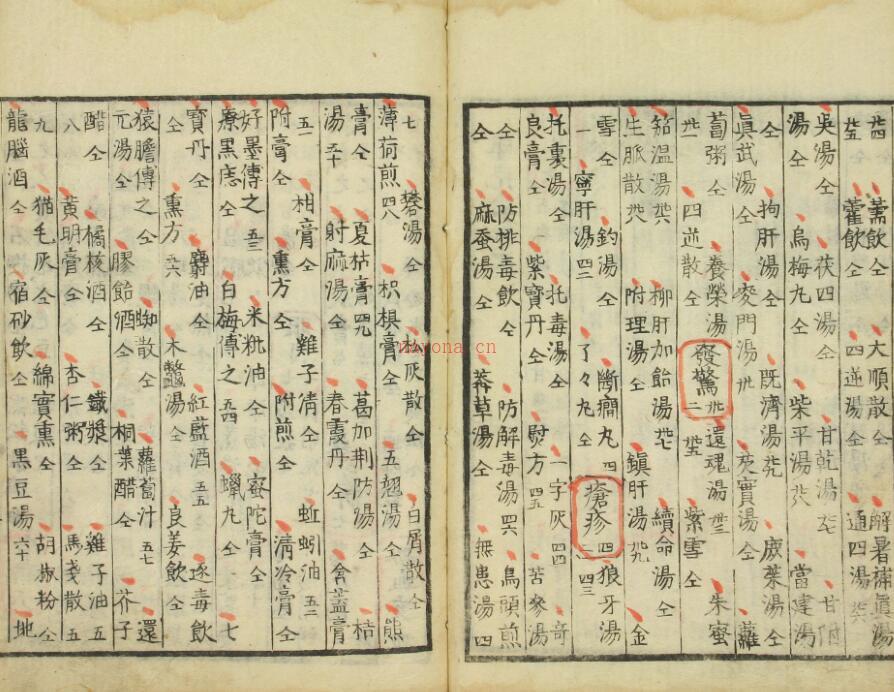 廿四 薷飲仝 大順散仝 解暑補眞湯
廿五 藿飲仝 四逆湯仝 通四湯廿六
吳湯仝 茯四湯仝 甘乾湯廿七 甘
湯仝 烏梅九仝 柴平湯廿八 當建湯
仝 拘肝湯仝 既濟湯卅 麻葉湯仝
眞武湯仝 麥門湯卅 芡實湯仝 蘿
蔔粥仝 養榮湯卅 發驚 二 還魂湯卅三 朱蜜
四逆散仝 紫雪仝
茹温湯 柳肝加飴湯 續命湯仝
生脈散 附理湯仝 鎮肝湯 金
雪仝 鈎湯仝 斷癇丸四 瘡疹 狼牙湯
一 寧肝湯四二 了々九仝 四三
托裏湯仝 托毒湯仝 一字灰四四 奇
良膏仝 紫寶丹仝 熨方四五 苦參湯
仝 防排毒飲仝 防解毒湯四六 烏頭煎
仝 麻蚕湯仝 莽草湯仝 無患湯四
七 蓉湯仝 杉灰散仝 白屑散仝 熊
薄荷煎四八 枳椇膏仝 五翹湯仝
膏仝 夏枯膏四九 葛加荆防湯仝 桔
湯五十 射麻湯仝 春霞丹仝 禽蓋膏
五一 柑膏仝 雞子清仝 蚯蚓油五二
附膏仝 熏方仝 附煎仝 清冷膏仝
好墨傅之五三 米粃油仝 蜜陀膏仝
療黑痣仝 白梅傅之五四 蠟九仝 七
寳丹仝 麝油仝 紅藍酒五五 逐毒飲
仝 熏方五六 木鼈湯仝 良姜飲仝
猿膽傅之仝 蜘散仝 蘿蔔汁五七 還
元湯仝 膠飴酒仝 桐葉醋仝 芥子
醋仝 橘核酒仝 鐵漿仝 雞子油五
八 黄明膏仝 杏仁粥仝 馬戔散五
九 猫毛灰仝 綿實熏仝 胡椒粉仝
龍腦酒仝 宿砂飲仝 黒豆湯六十 地
nayona.cn